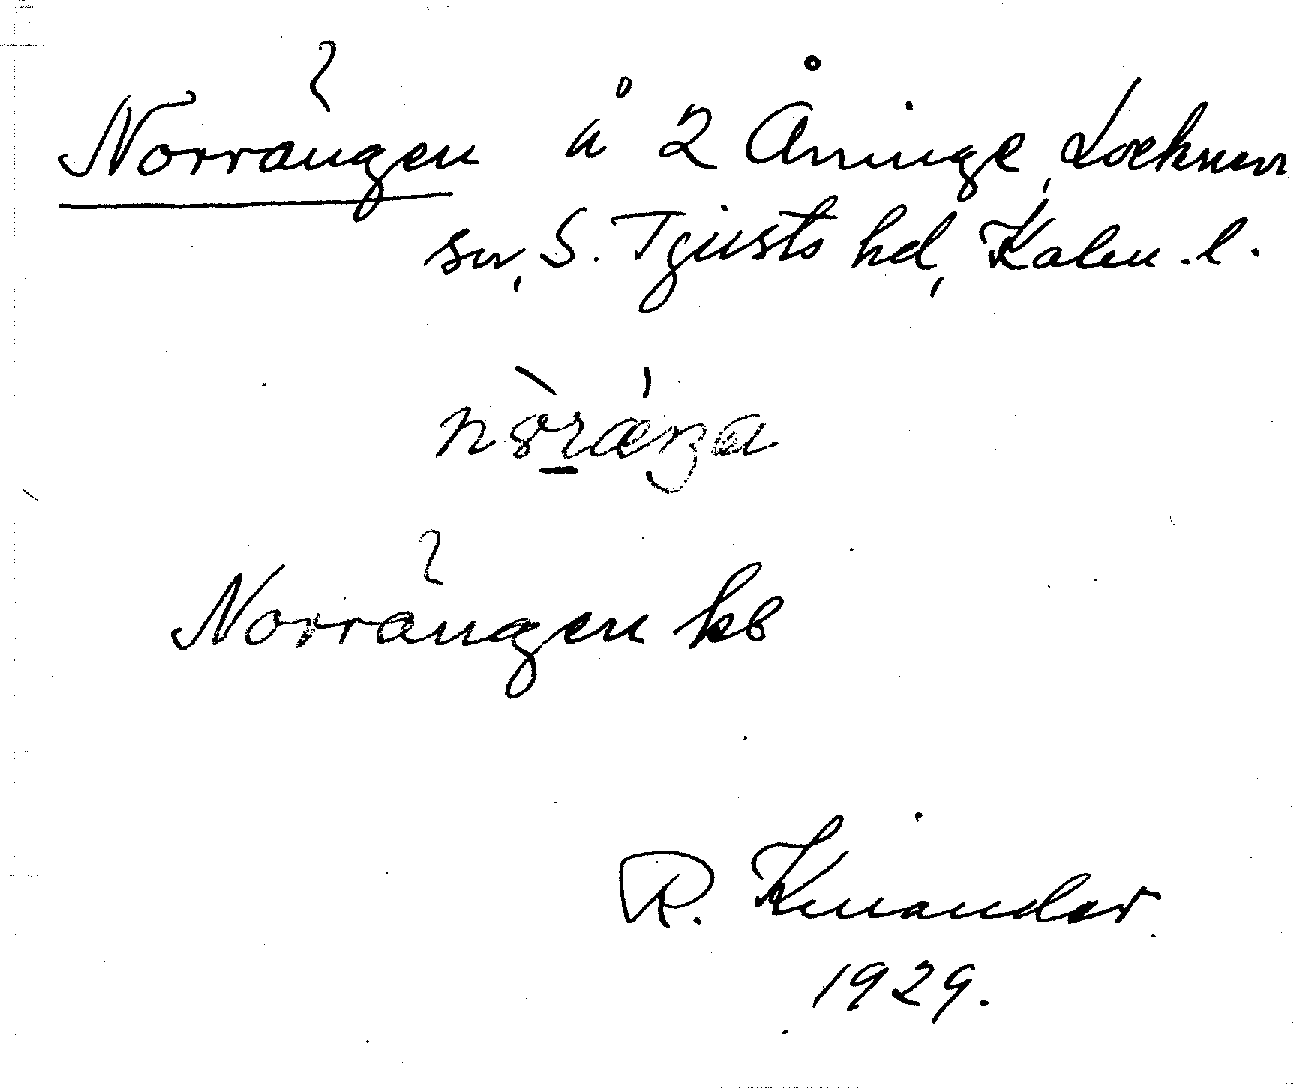 Norrängen å 2 Åninge, Locknevi
sn, S. Tjusts hd, Kalm. l.
Norrängen kb
R. Kinander
1929.